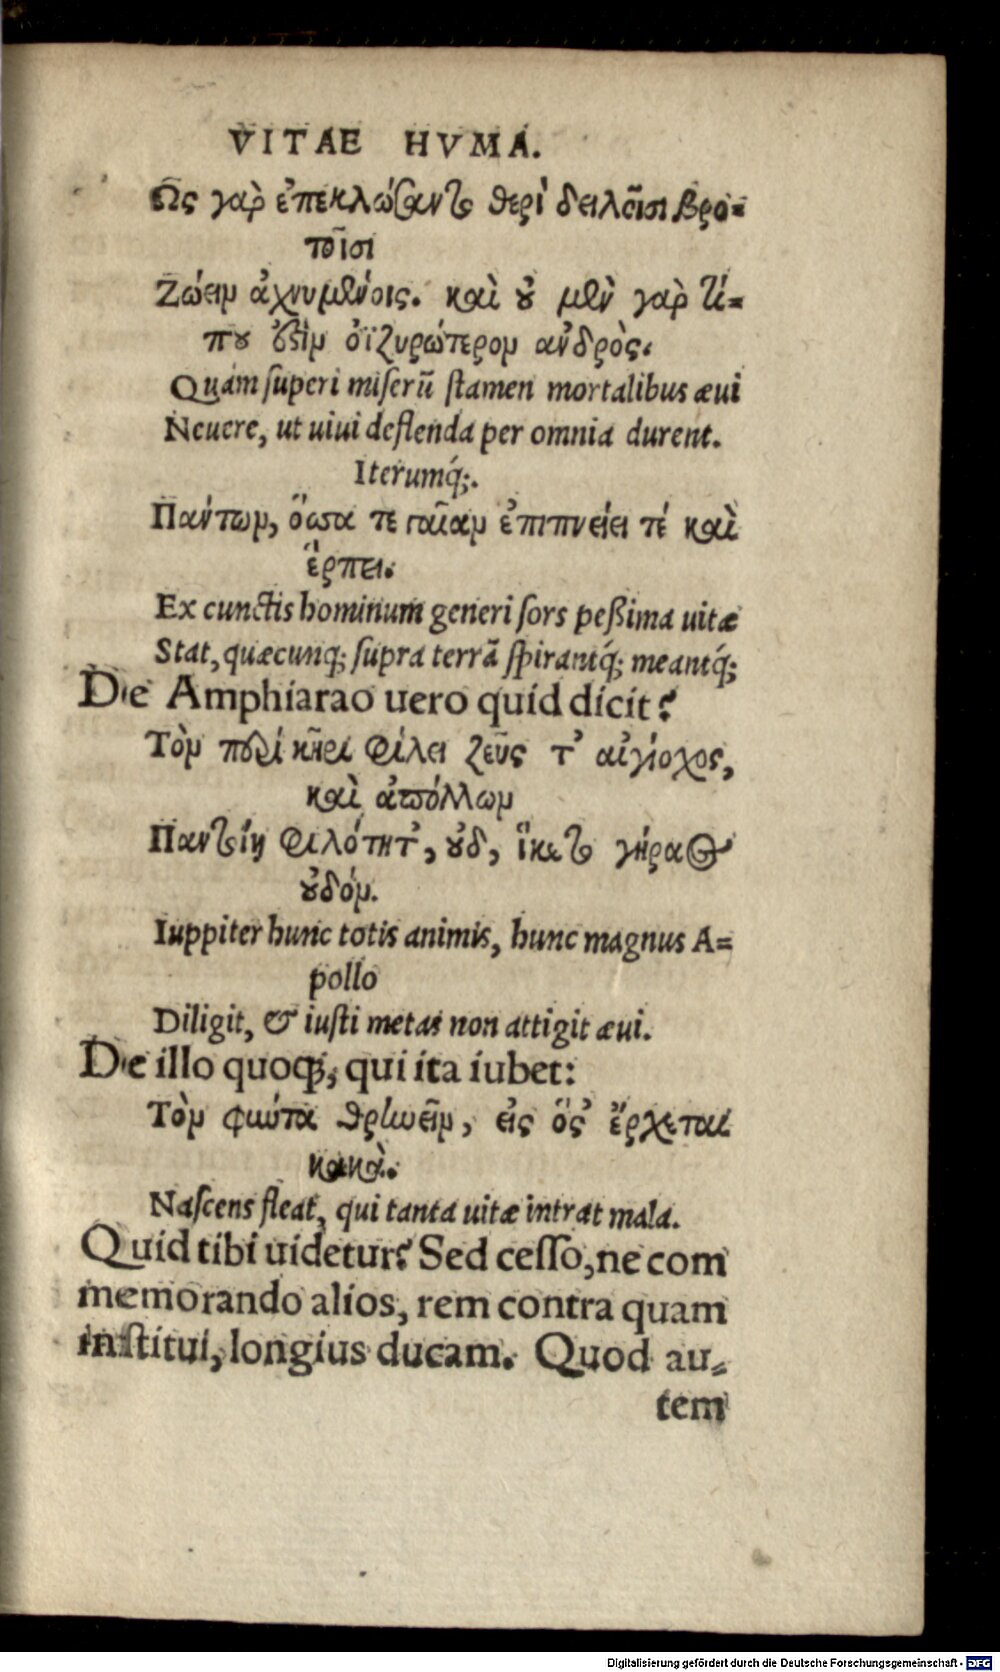 VITAE HVMA.
Ως γαρ̀ ἐπεκλώσαντο θεοὶ δειλοῖσι βρο=
τοῖσι
Ζώειν ἀχνυμένοις. καὶ ȣ μὲν γαρ̀ τί=
πȣ ὀϊζυρώτερον ανδρὸς.
Quàm superi miserũ stamen mortalibus æui
Neuere, ut uiui deflenda per omnia durent.
Iterumq́;.
Παντων, ὅσσα τε γαῖαν ἐπιπνείει τέ καὶ
ἕρπει.
Ex cunctis hominum generi sors peßima uitæ
Stat, quæcunq; supra terrã spirantq́; meantq́;
De Amphiarao uero quid dicit?
Τὸν περὶ κῆρι φίλει ζεῦς τ' αἰγίοχος,
καὶ ἀπόλλων
Παντοίη φιλότητ', ȣδ, ἵκετο γήραος
ȣδόν.
Iuppiter hunc totis animis, hunc magnus A=
pollo
Diligit, & iusti metas non attigit æui.
De illo quoq;, qui ita iubet:
Τὸν φώτα θρηνεῖν, εἰς ὅς' ἔρχεται
κακὰ.
Nascens fleat, qui tanta uitæ intrat mala.
Quid tibi uidetur? Sed cesso, ne com
memorando alios, rem contra quam
institui, longius ducam. Quod au-
tem
Digitalisierung gefördert durch die Deutsche Forschungsgemeinschaft - DFG